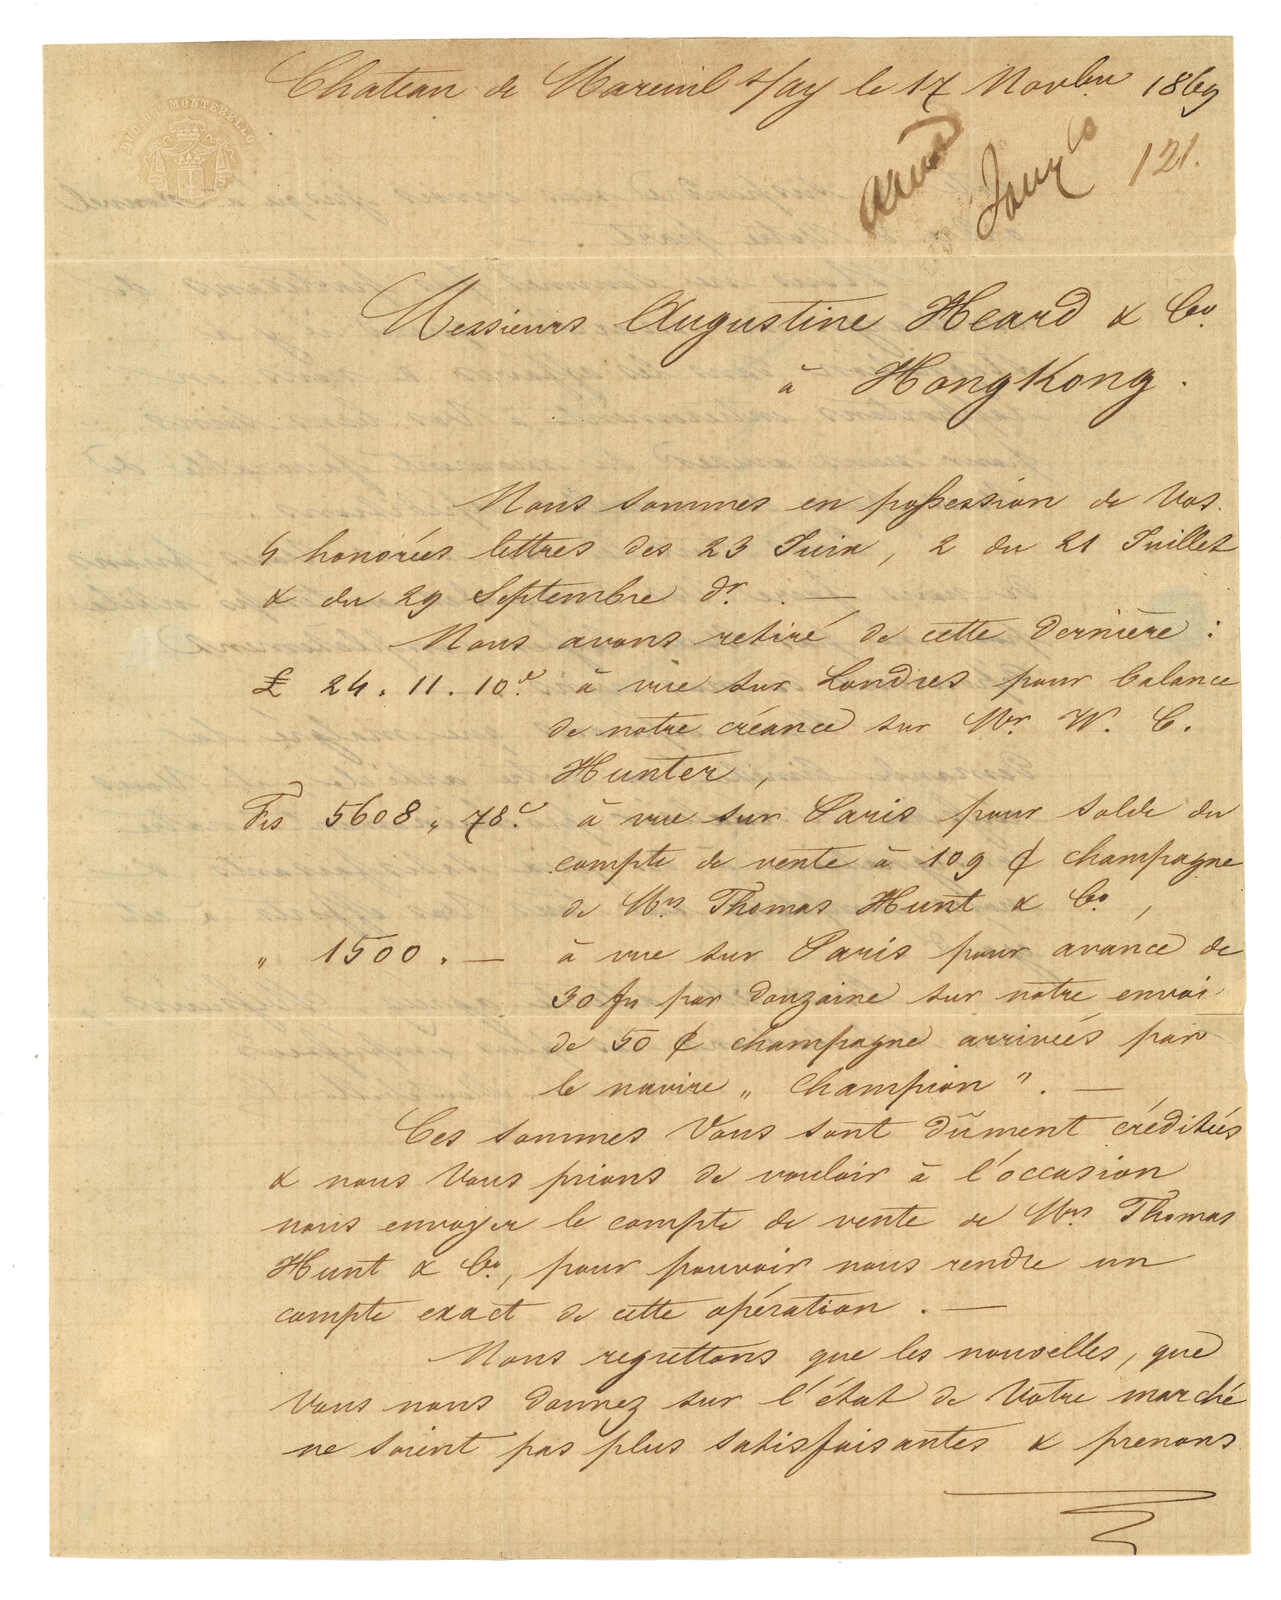 Chateau de Mareuil s/Ay le 17 Novbre 1869
DUC DE MONTEBELLO
121.
Messieurs Augustine Heard & Co.
à HongKong.
Nous sommes en possession de Vos.
4 honorées lettres des 23 Juin, 2 du 21 Juillet
& du 29 Septembre dr. . —
Nous avons retiré de cette dernière :
£ 24. 11. 10d. à vue sur Londres pour balance
de notre créance sur Mr. W. C.
Hunter,
Fcs 5608 „ 78c. à vue sur Paris pour solde du
compte de vente à 109 ₵ champagne
de Mrs Thomas Hunt & Co.,
„ 1500. — à vue sur Paris pour avance de
30 frs par douzaine sur notre envoi
de 50 ₵ champagne arrivées par
le navire „ Champion ". —
Ces sommes Vous sont dûment créditées
& nous Vous prions de vouloir à l'occasion
nous envoyer le compte de vente de Mrs Thomas
Hunt & Co., pour pouvoir nous rendre un
compte exact de cette opération. —
Nous regrettons que les nouvelles, que
Vous nous donnez sur l'état de Votre marché
ne soient pas plus satisfaisantes & prenons